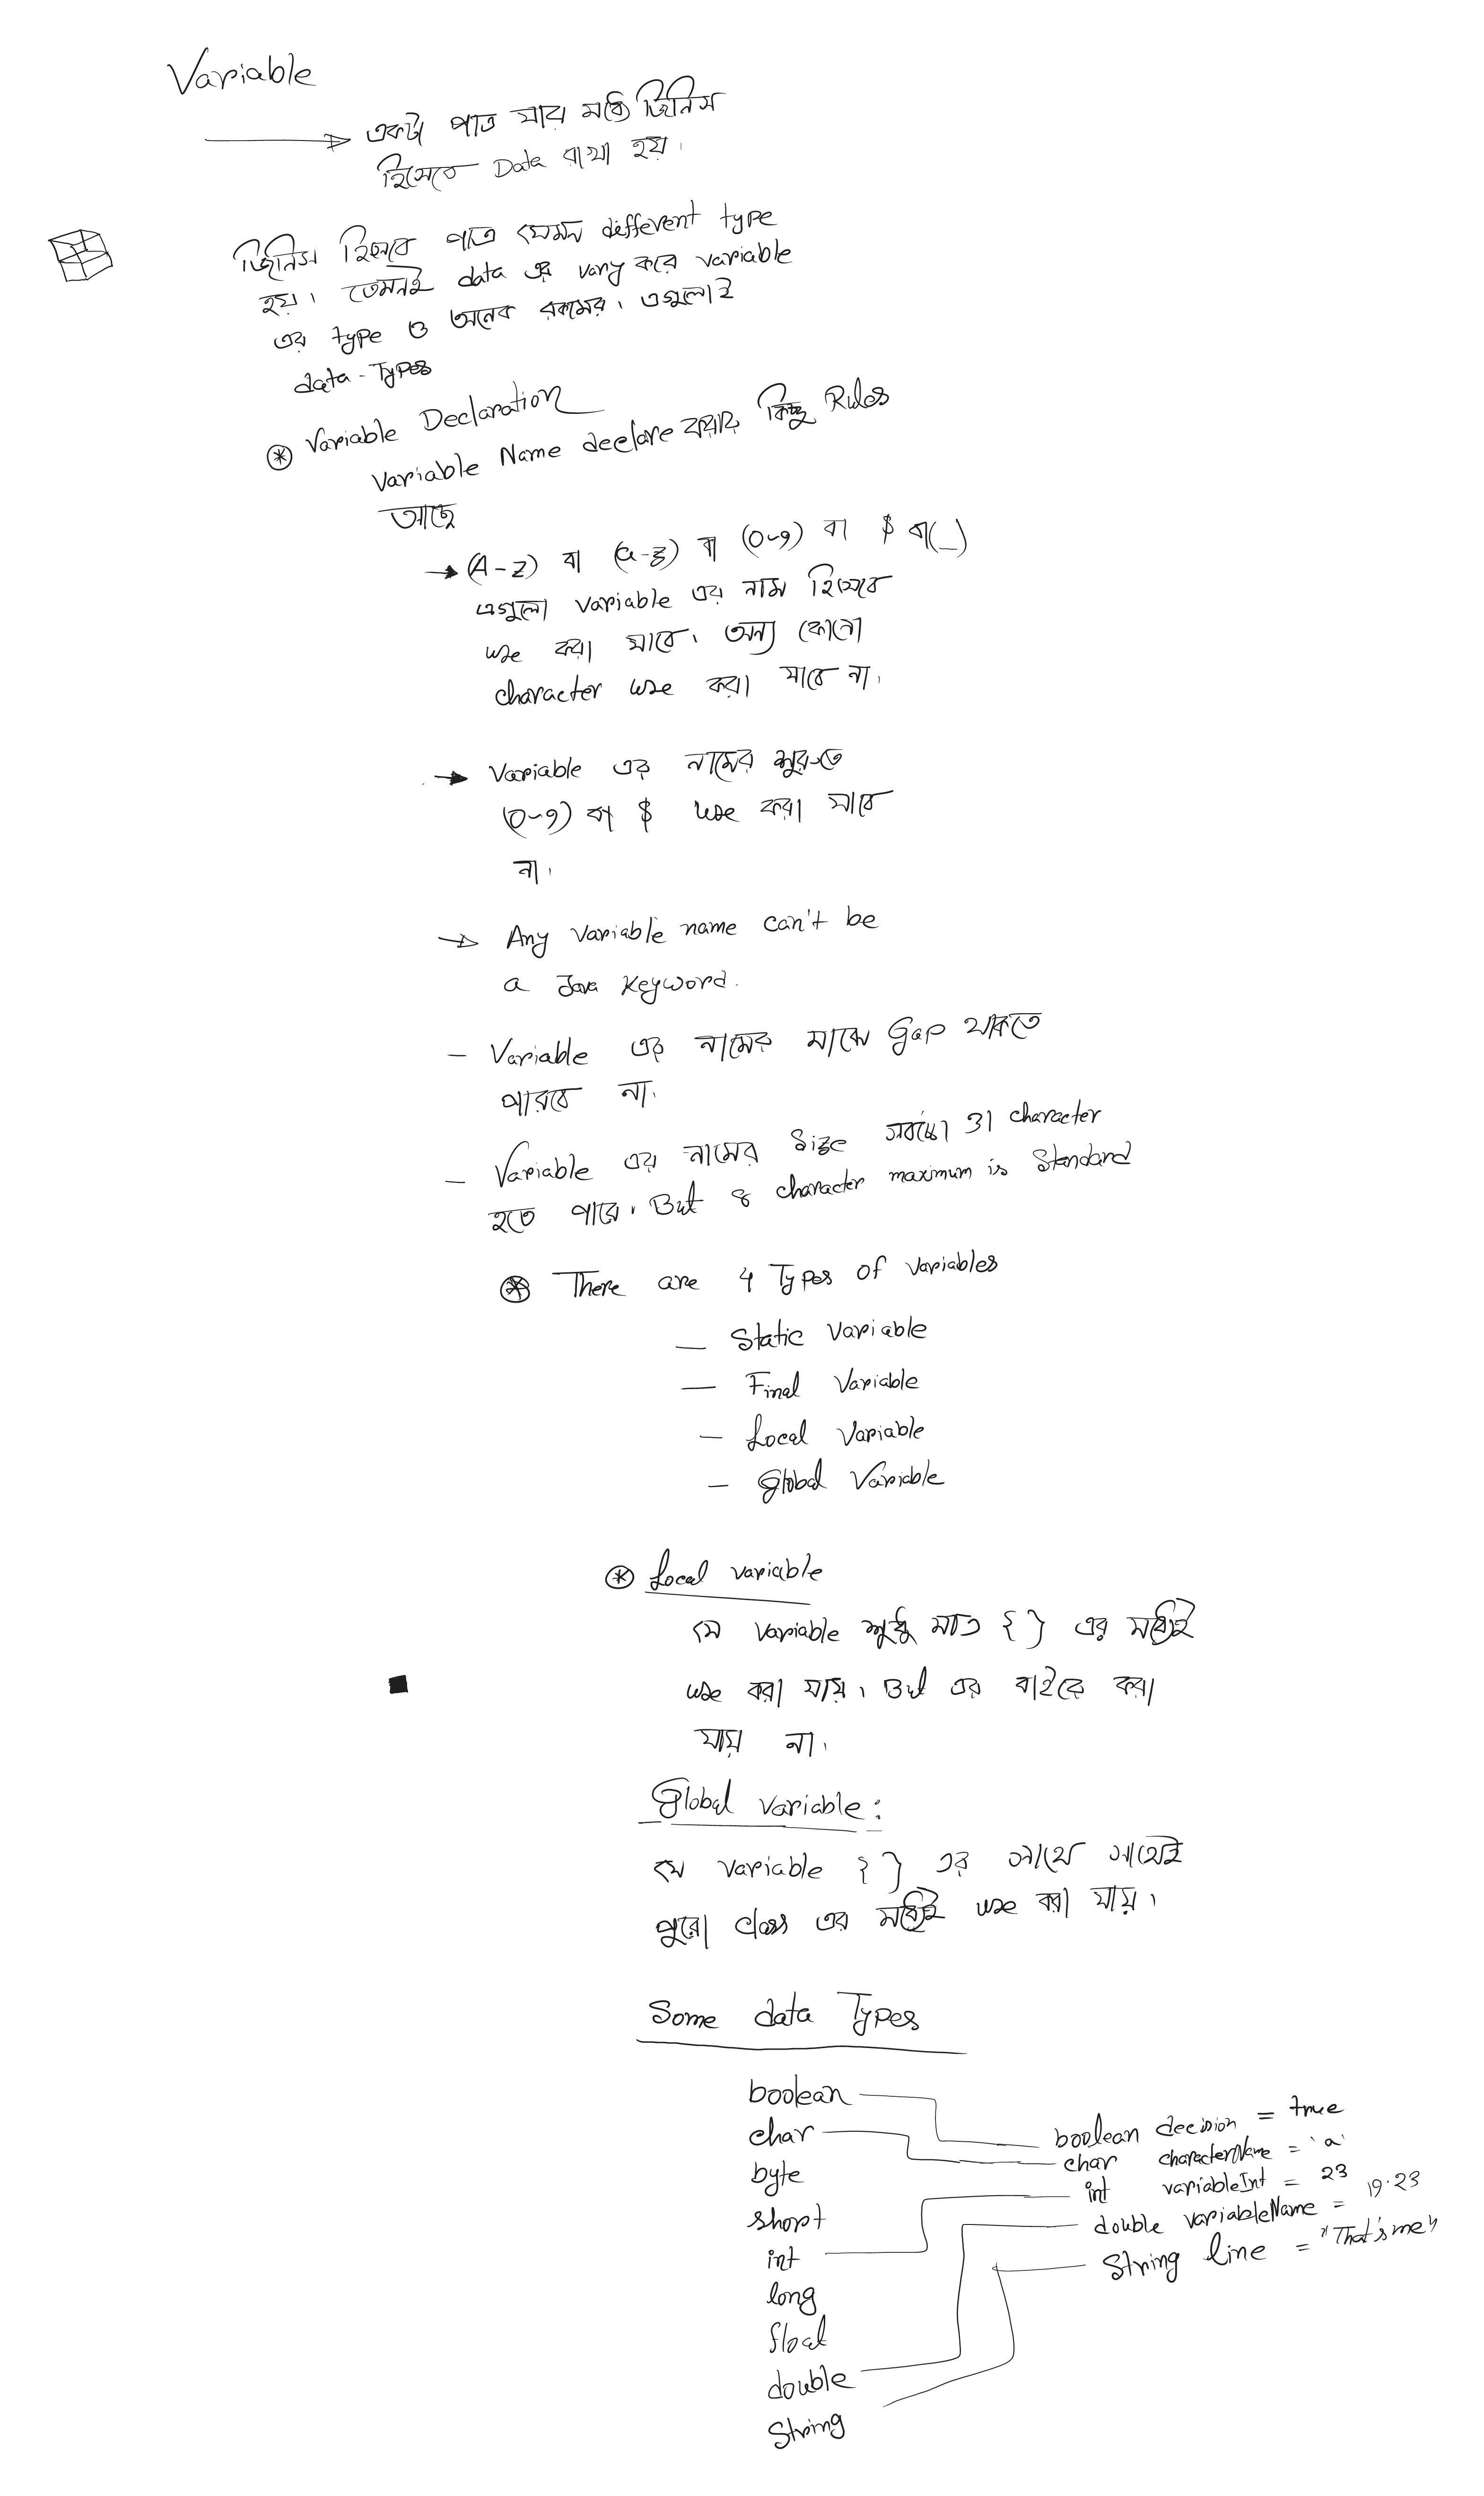 Variable
একটা পাত্র যার মধ্যে জিনিস
হিসেবে Data রাখা হয়।
জিনিস হিসেবে পাত্র যেমন different type
হয়। তেমনই data এর vary করে variable
এর type ও অনেক রকমের। এগুলোই
data-Types
Variable Declaration
Variable Name declare করার কিছু Rules
আছে
→ (A-Z) বা (a-z) বা (0-9) বা $ বা (_)
এগুলো variable এর নাম হিসেবে
use করা যাবে। অন্য কোনো
character use করা যাবে না।
→ Variable এর নামের শুরুতে
(0-9) বা $ use করা যাবে
না।
→ Any variable name can't be
a Java Keyword.
- Variable এর নামের মাঝে Gap থাকতে
পারবে না।
- Variable এর নামের Size 31 character
হতে পারে। But 8 character maximum is Standard
There are 4 Types of variables
- Static Variable
- Final Variable
- Local Variable
- Global Variable
Local variable
যে variable শুধু মাত্র { } এর মধ্যেই
use করা যায়। But এর বাইরে করা
যায় না।
Global variable:
যে variable { } এর সাথে সাথেই
পুরো class এর মধ্যেই use করা যায়।
Some data Types
boolean
char
byte
short
int
long
float
double
String
boolean decision = true
char characterName = 'a'
int variableInt = 23
double variableName = 19.23
String line = "That's me"